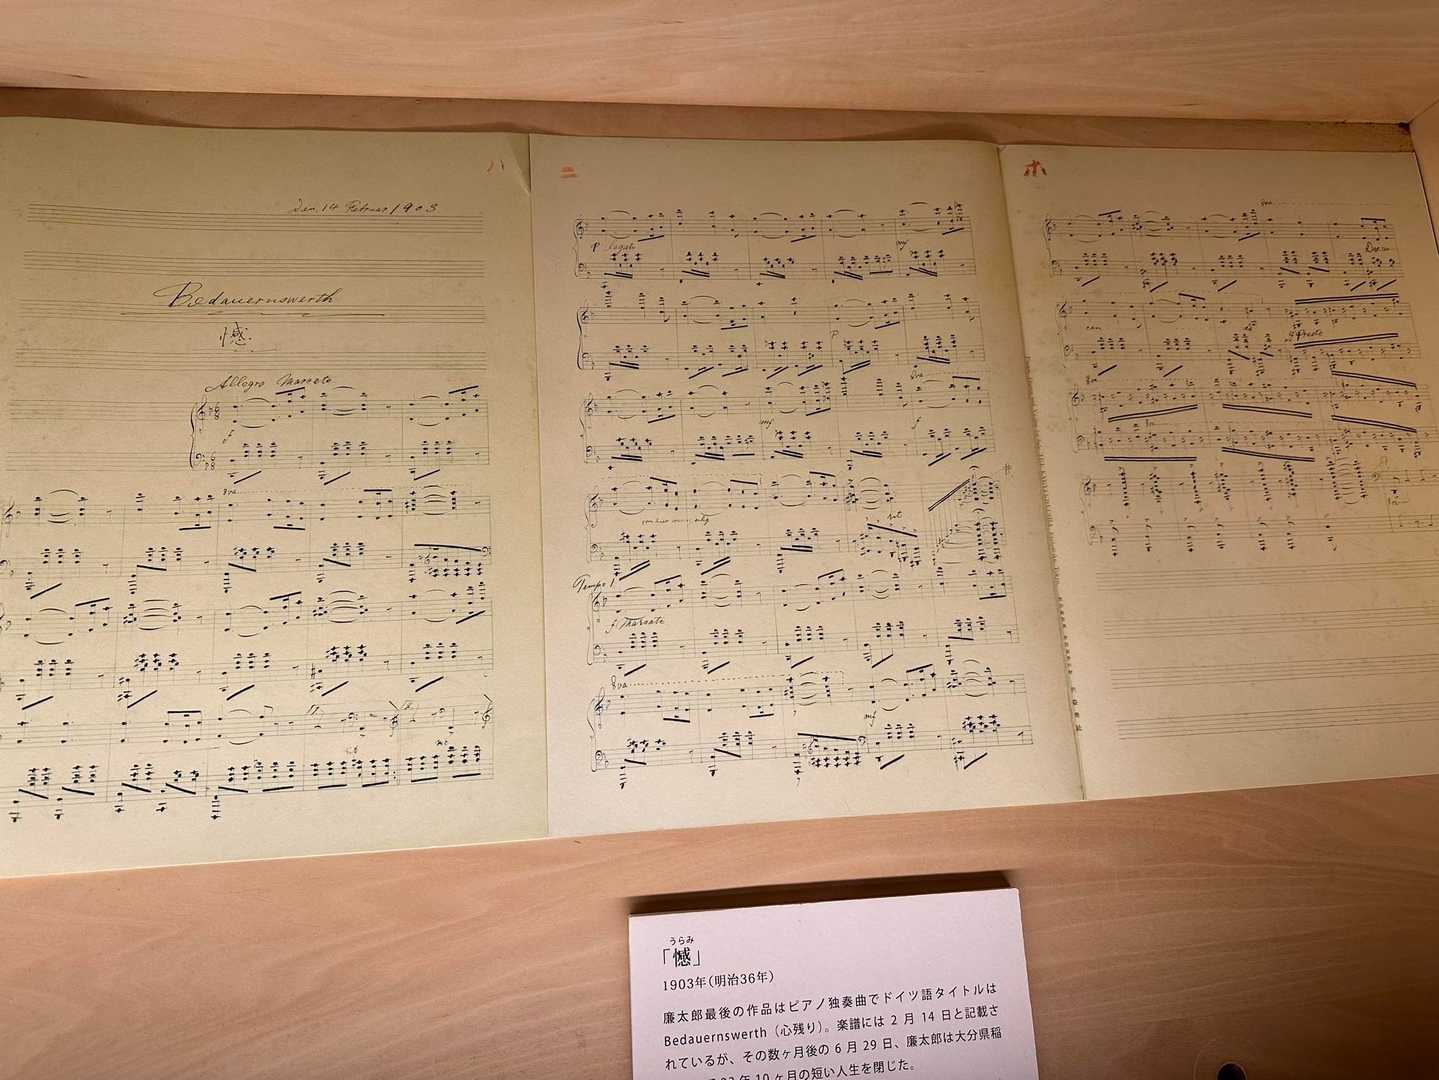 ハ
Den. 14 Februar 1903
Bedauernswerth
憾
Allegro Marcato
f
8va
ニ
p legato
mf
p
8va
mf
f
Tempo I
f Marcato
8va
mf
ホ
8va
8va
うらみ
「憾」
1903年(明治36年)
廉太郎最後の作品はピアノ独奏曲でドイツ語タイトルは
Bedauernswerth(心残り)。楽譜には 2 月 14 日と記載さ
れているが、その数ヶ月後の 6 月 29 日、廉太郎は大分県稲
年 10 ヶ月の短い人生を閉じた。